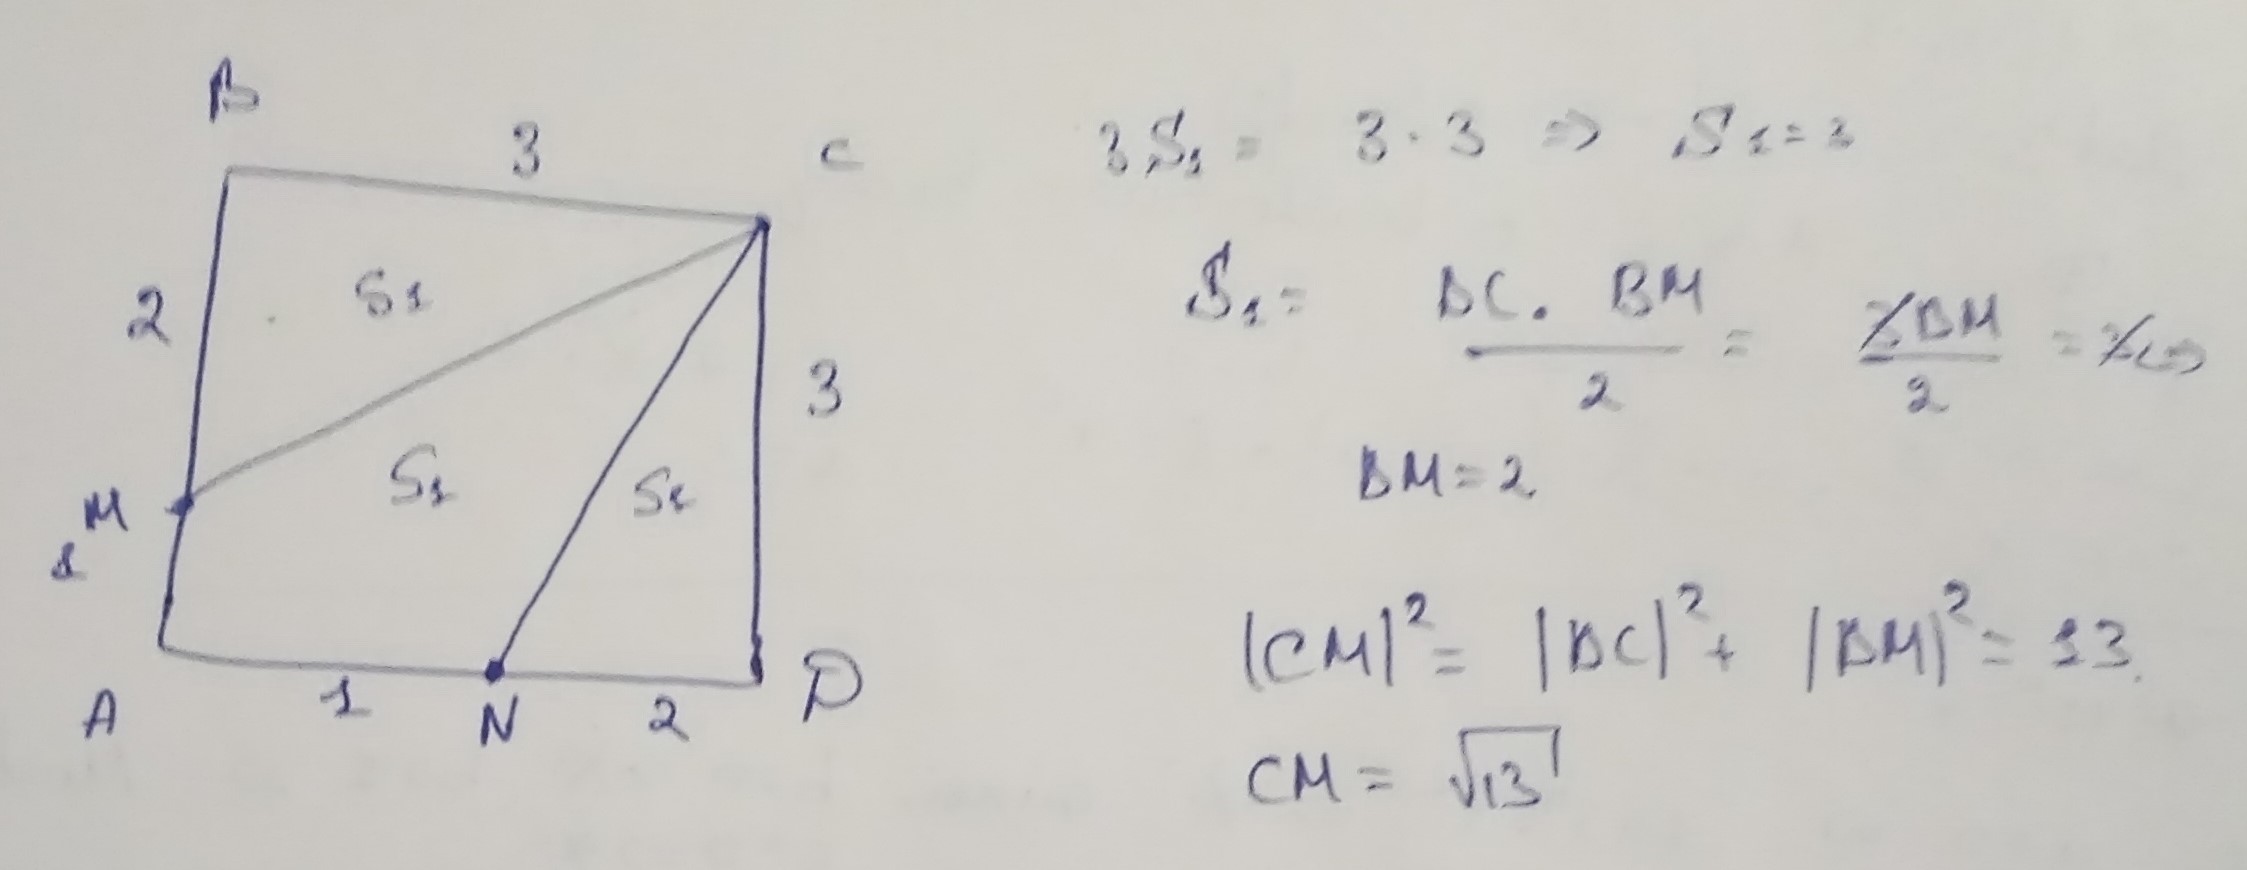 B
3
C
2
S₁
M
1
S₁
S₁
3
A
1
N
2
D
3S₁ = 3 · 3 ⇒ S₁ = 3
S₁ = BC · BM / 2 = 3BM / 2 = 3 ⇔
BM = 2
|CM|² = |BC|² + |BM|² = 13.
CM = √13